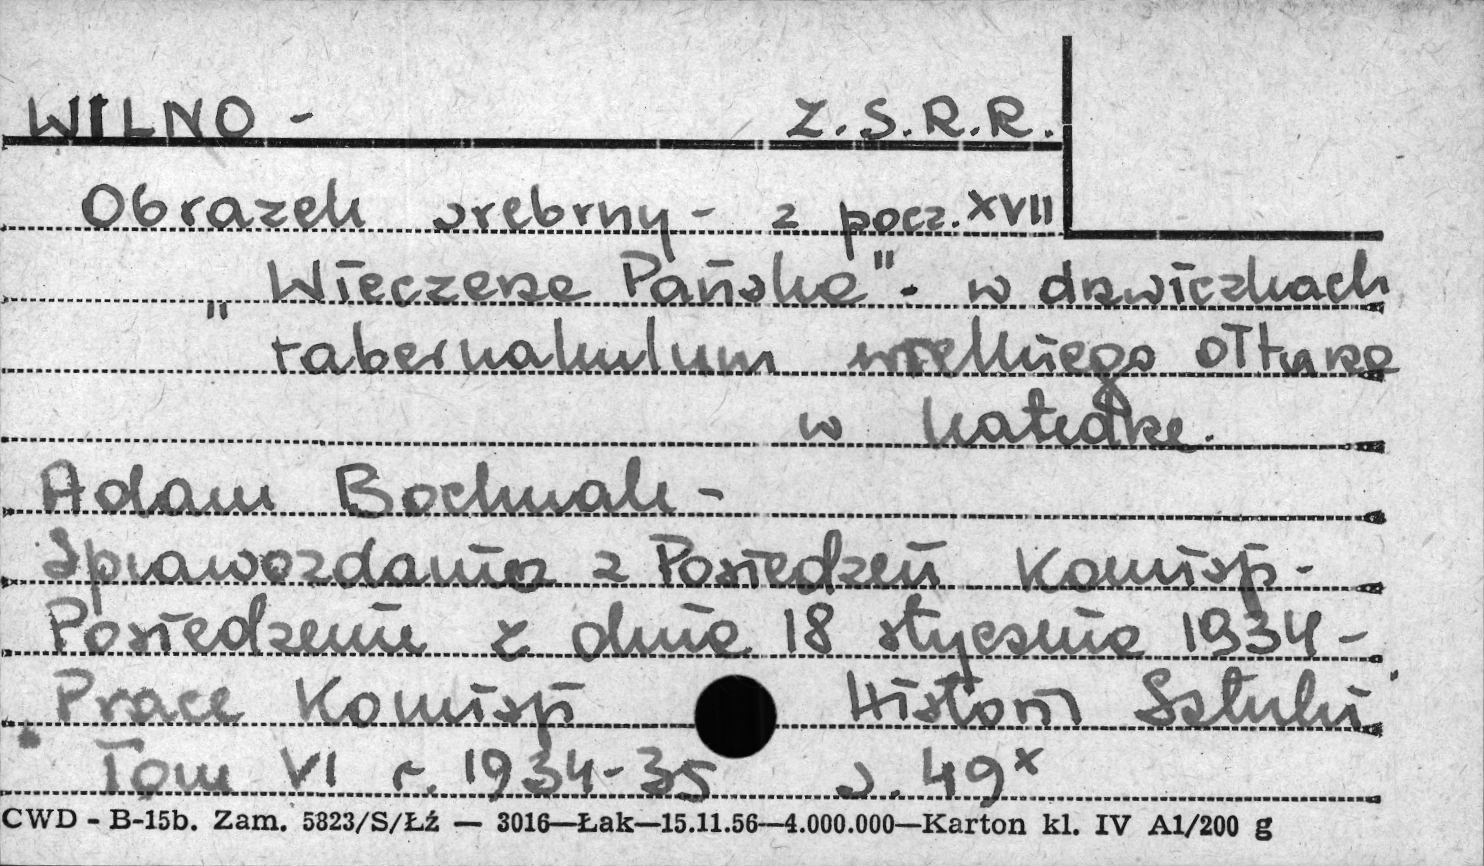 WILNO - Z.S.R.R.
Obrazek srebrny - z pocz. XVII
"Wieczerza Pańska" - w drzwiczkach
tabernakulum wielkiego ołtarza
w katedrze.
Adam Bochnak -
Sprawozdania z Posiedzeń Komisji -
Posiedzenie z dnia 18 stycznia 1934 -
Prace Komisji Historii Sztuki
Tom VI r. 1934-35 s. 49x
CWD - B-15b. Zam. 5823/S/Łź — 3016—Łak—15.11.56—4.000.000—Karton kl. IV A1/200 g